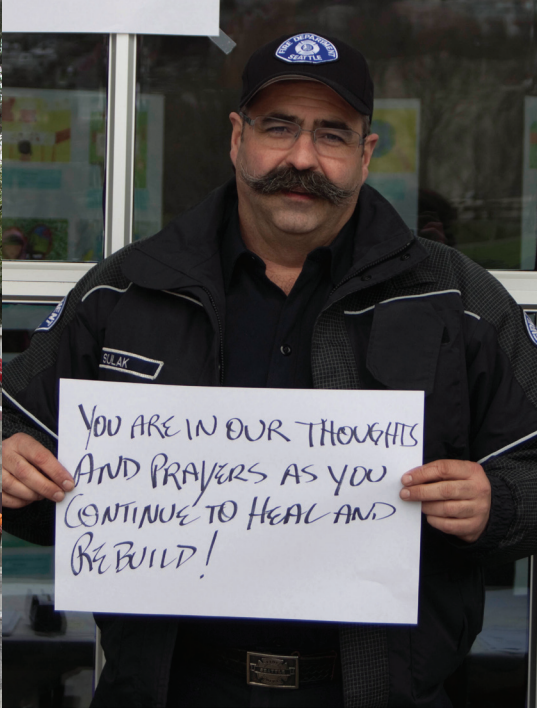 FIRE DEPARTMENT
SEATTLE
SULAK
YOU ARE IN OUR THOUGHTS
AND PRAYERS AS YOU
CONTINUE TO HEAL AND
REBUILD!